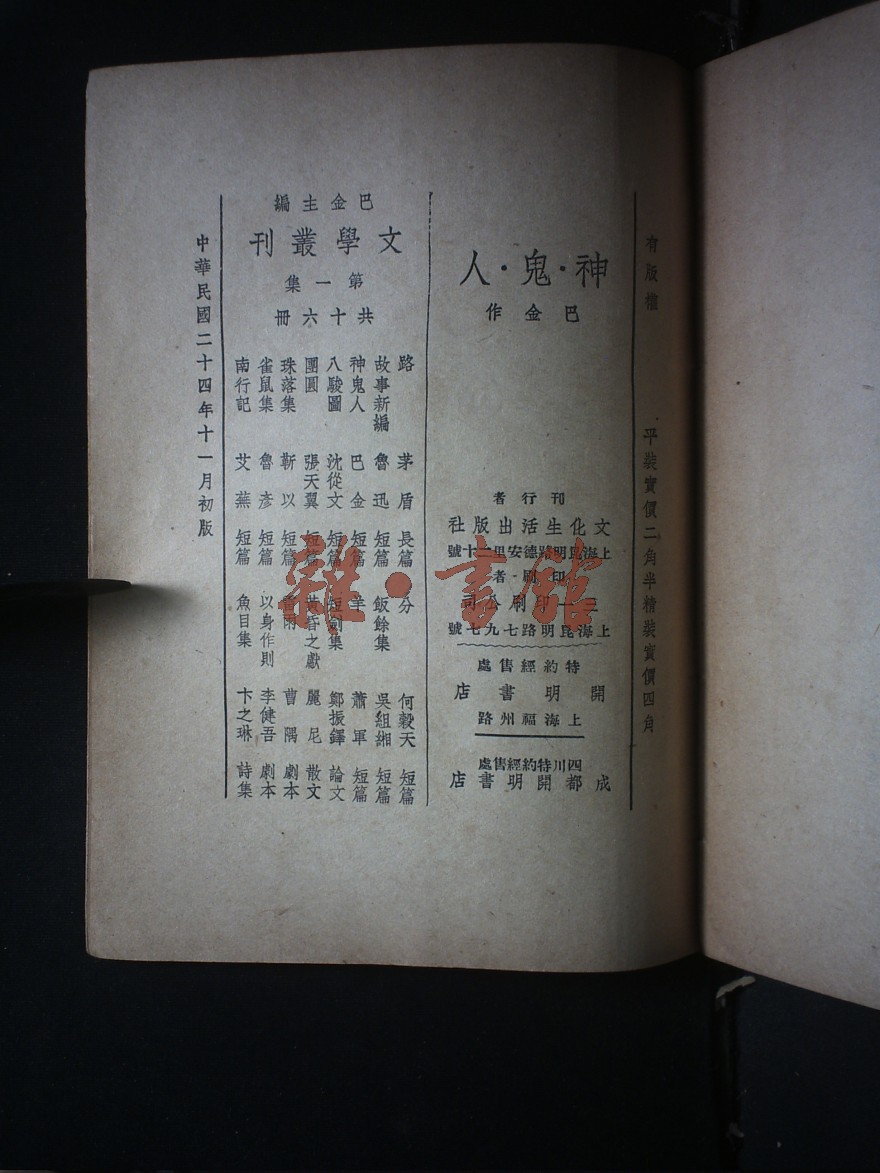 有版權 平裝實價二角半精裝實價四角
神·鬼·人
巴金作
刊行者
文化生活出版社
上海昆明路德安里二十號
印刷者
三一印刷公司
上海昆明路七九七號
特約經售處
開明書店
上海福州路
四川特約經售處
成都開明書店
巴金主編
文學叢刊
第一集
共十六冊
路 茅盾 長篇 分 何穀天 短篇
故事新編 魯迅 短篇 飯餘集 吳組緗 短篇
神鬼人 巴金 短篇 羊 蕭軍 短篇
八駿圖 沈從文 短篇 短劍集 鄭振鐸 論文
團圓 張天翼 短篇 黃昏之獻 麗尼 散文
珠落集 靳以 短篇 雷雨 曹隅 劇本
雀鼠集 魯彥 短篇 以身作則 李健吾 劇本
南行記 艾蕪 短篇 魚目集 卞之琳 詩集
中華民國二十四年十一月初版
雜·書館